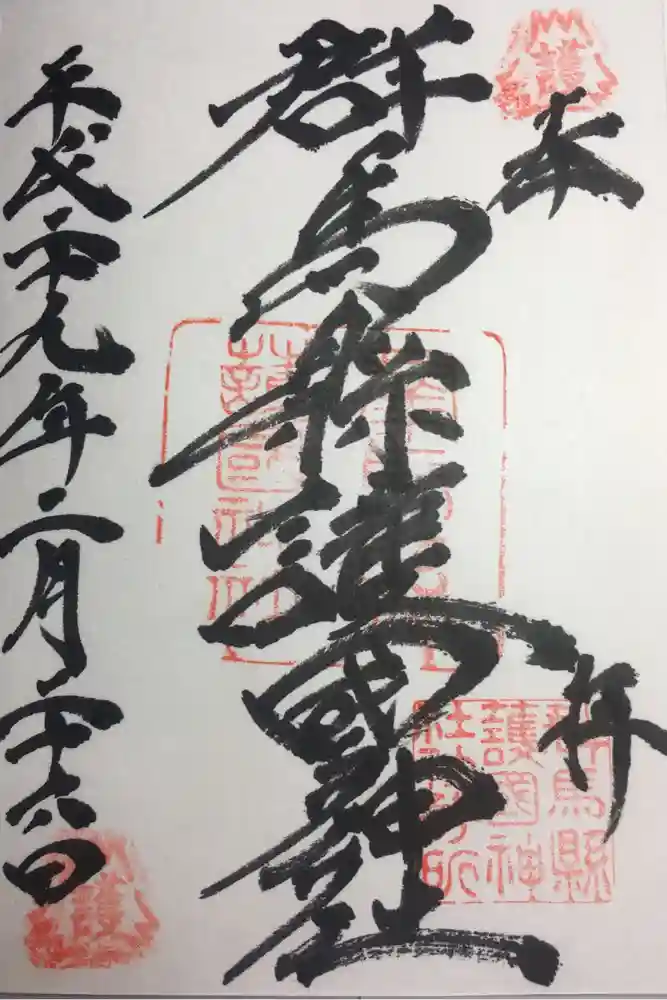 奉拝
群馬縣護國神社
平成二十九年二月二十六日
護
群馬縣
護國神
社社務所
護